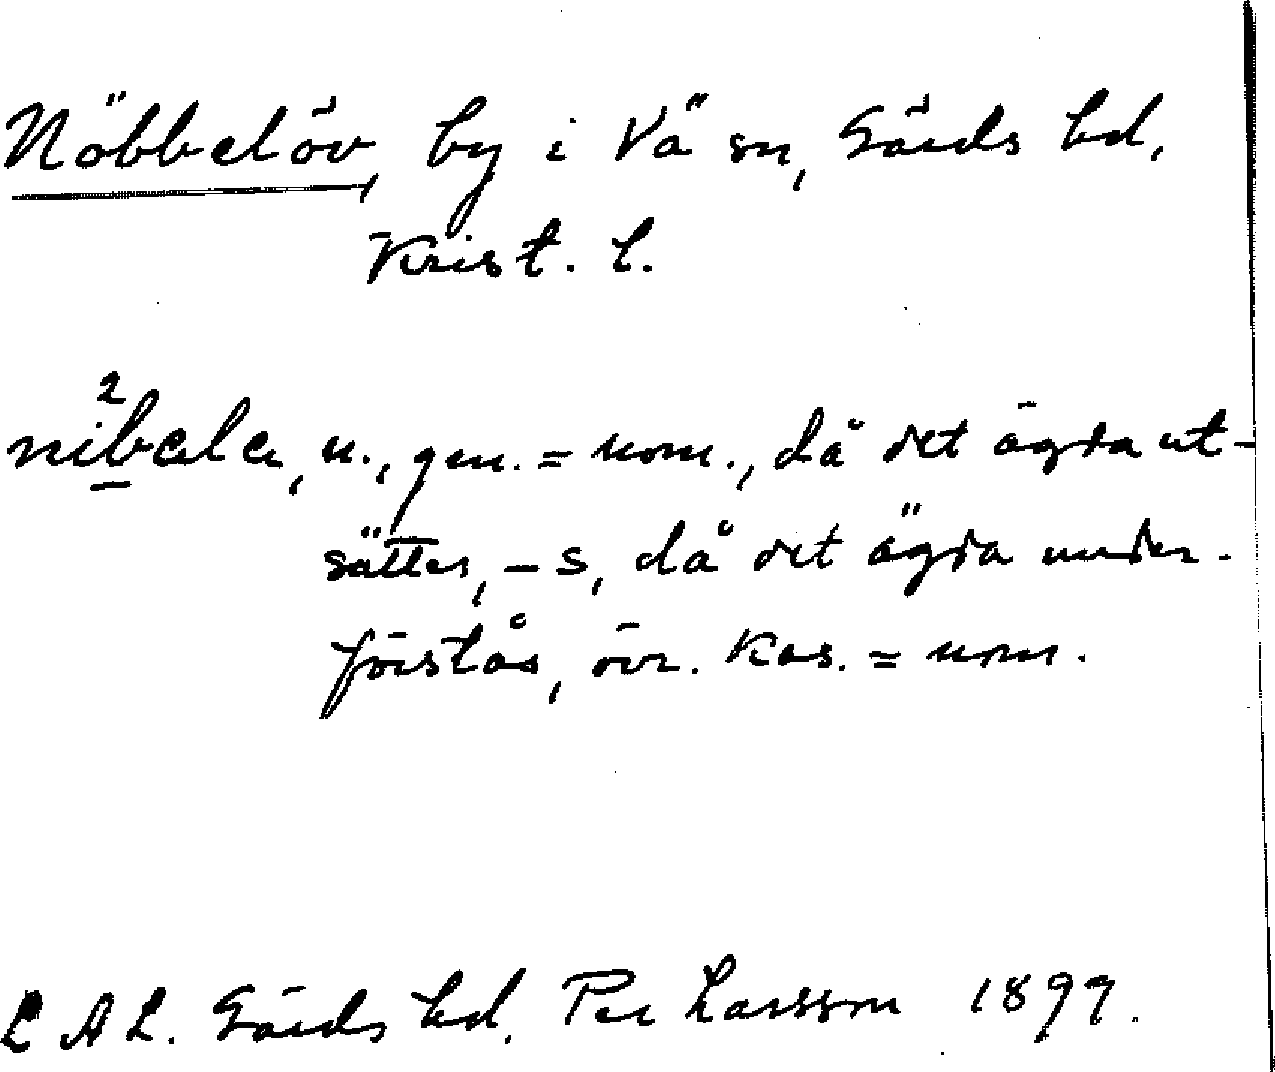 Nöbbelöv, by i Vä sn, Gärds hd,
Krist. l.
nibele, n., gen. = nom., då det ägda ut-
sättes, -s, då det ägda under-
förstås, övr. kas. = nom.
LAL. Gärds hd. Per Larsson 1897.